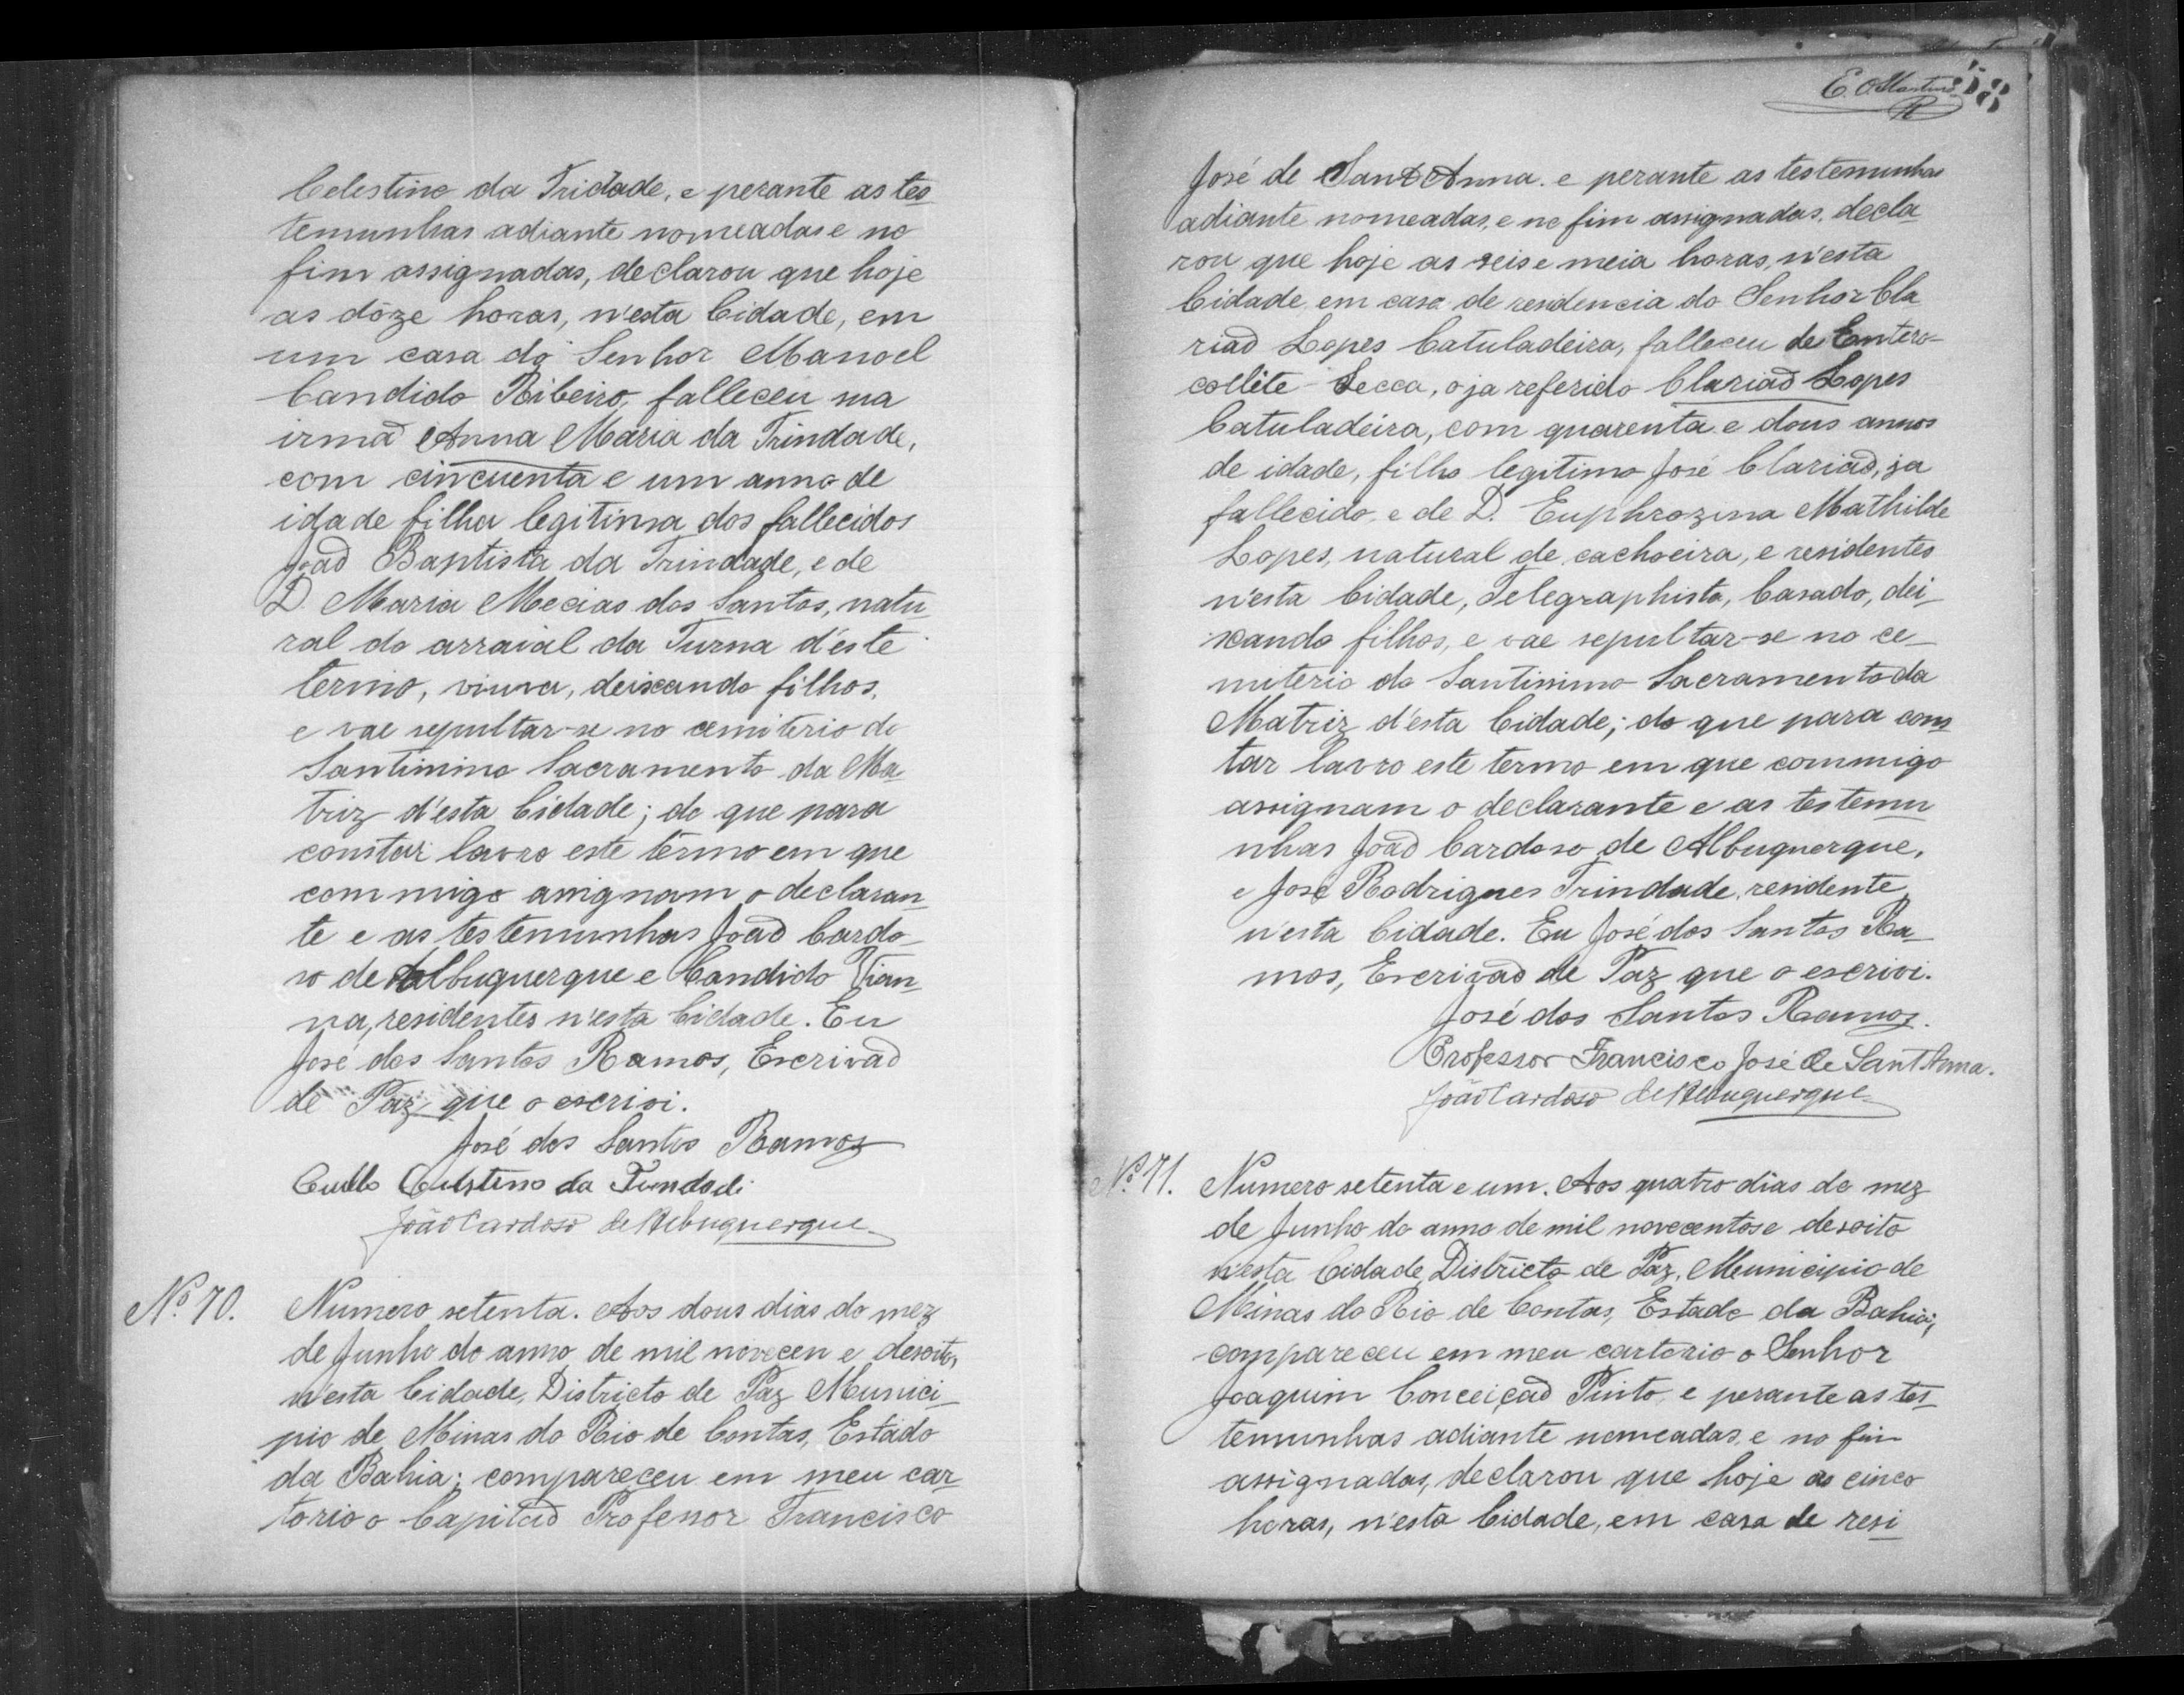 Celestino da Tridade, e perante as tes
temunhas adiante nomeadas e no
fim assignadas, declarou que hoje
as dóze horas, n'esta Cidade, em
um casa do Senhor Manoel
Candido Ribeiro, falleceu sua
irmã Anna Maria da Trindade,
com cincuenta e um anno de
idade filha legitima dos fallecidos
João Baptista da Trindade, e de
D. Maria Mecias dos Santos, natu
ral do arraial da Furna d'este
termo, viuva, deixando filhos,
e vae sepultar-se no cemiterio do
Santissimo Sacramento da Ma
triz d'esta Cidade; do que para
constar lavro este termo em que
commigo assignam o declaran
te e as testemunhas João Cardo
so de Albuquerque e Candido Vian
na, residentes n'esta Cidade. Eu
José dos Santos Ramos, Escrivão
de Paz que o escrivi.
José dos Santos Ramos
Celestino da Trindade
João Cardoso de Albuquerque
Nº 70. Numero setenta. Aos dous dias do mez
de Junho do anno de mil novecen e desoito,
n'esta Cidade, Districto de Paz Munici
pio de Minas do Rio de Contas, Estado
da Bahia; compareceu em meu car
torio o Capitão Professor Francisco
E. O. Martins 58
José de Sant Anna. e perante as testemunhas
adiante nomeadas, e no fim assignadas, decla
rou que hoje as seis e meia horas, n'esta
Cidade em casa de residencia do Senhor Cla
rião Lopes Catuladeira, falleceu de Entero-
collite Secca, o ja referido Clarião Lopes
Catuladeira, com quarenta e dous annos
de idade, filho legitimo José Clarião, ja
fallecido, e de D. Euphrozina Mathilde
Lopes, natural de cachoeira, e residentes
n'esta Cidade, Telegraphista, Casado, dei
xando filhos, e vae sepultar-se no ce
miterio do Santissimo Sacramento da
Matriz d'esta Cidade; do que para cons
tar lavro este termo em que commigo
assignam o declarante e as testemu
nhas João Cardoso de Albuquerque,
e José Rodrigues Trindade, residente
n'esta Cidade. Eu José dos Santos Ra
mos, Escrivão de Paz que o escrivi.
José dos Santos Ramos.
Professor Francisco José de Sant'Anna.
João Cardoso de Albuquerque
Nº 71. Numero setenta e um. Aos quatro dias do mez
de Junho do anno de mil novecentos e desoito
n'esta Cidade, Districto de Paz, Municipio de
Minas do Rio de Contas, Estado da Bahia;
compareceu em meu cartorio o Senhor
Joaquim Conceição Pinto, e perante as tes
temunhas adiante nomeadas, e no fim
assignadas, declarou que hoje as cinco
horas, n'esta Cidade, em casa de resi